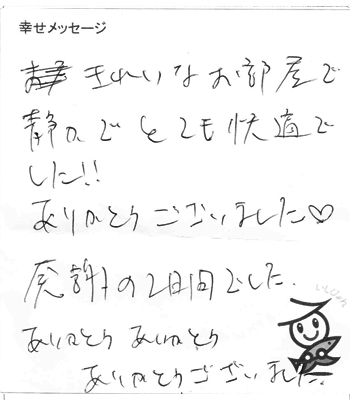 幸せメッセージ
きれいなお部屋で
静かでとても快適で
した!!
ありがとうございました♡
感謝の2日間でした.
ありがとう ありがとう
ありがとうございました.